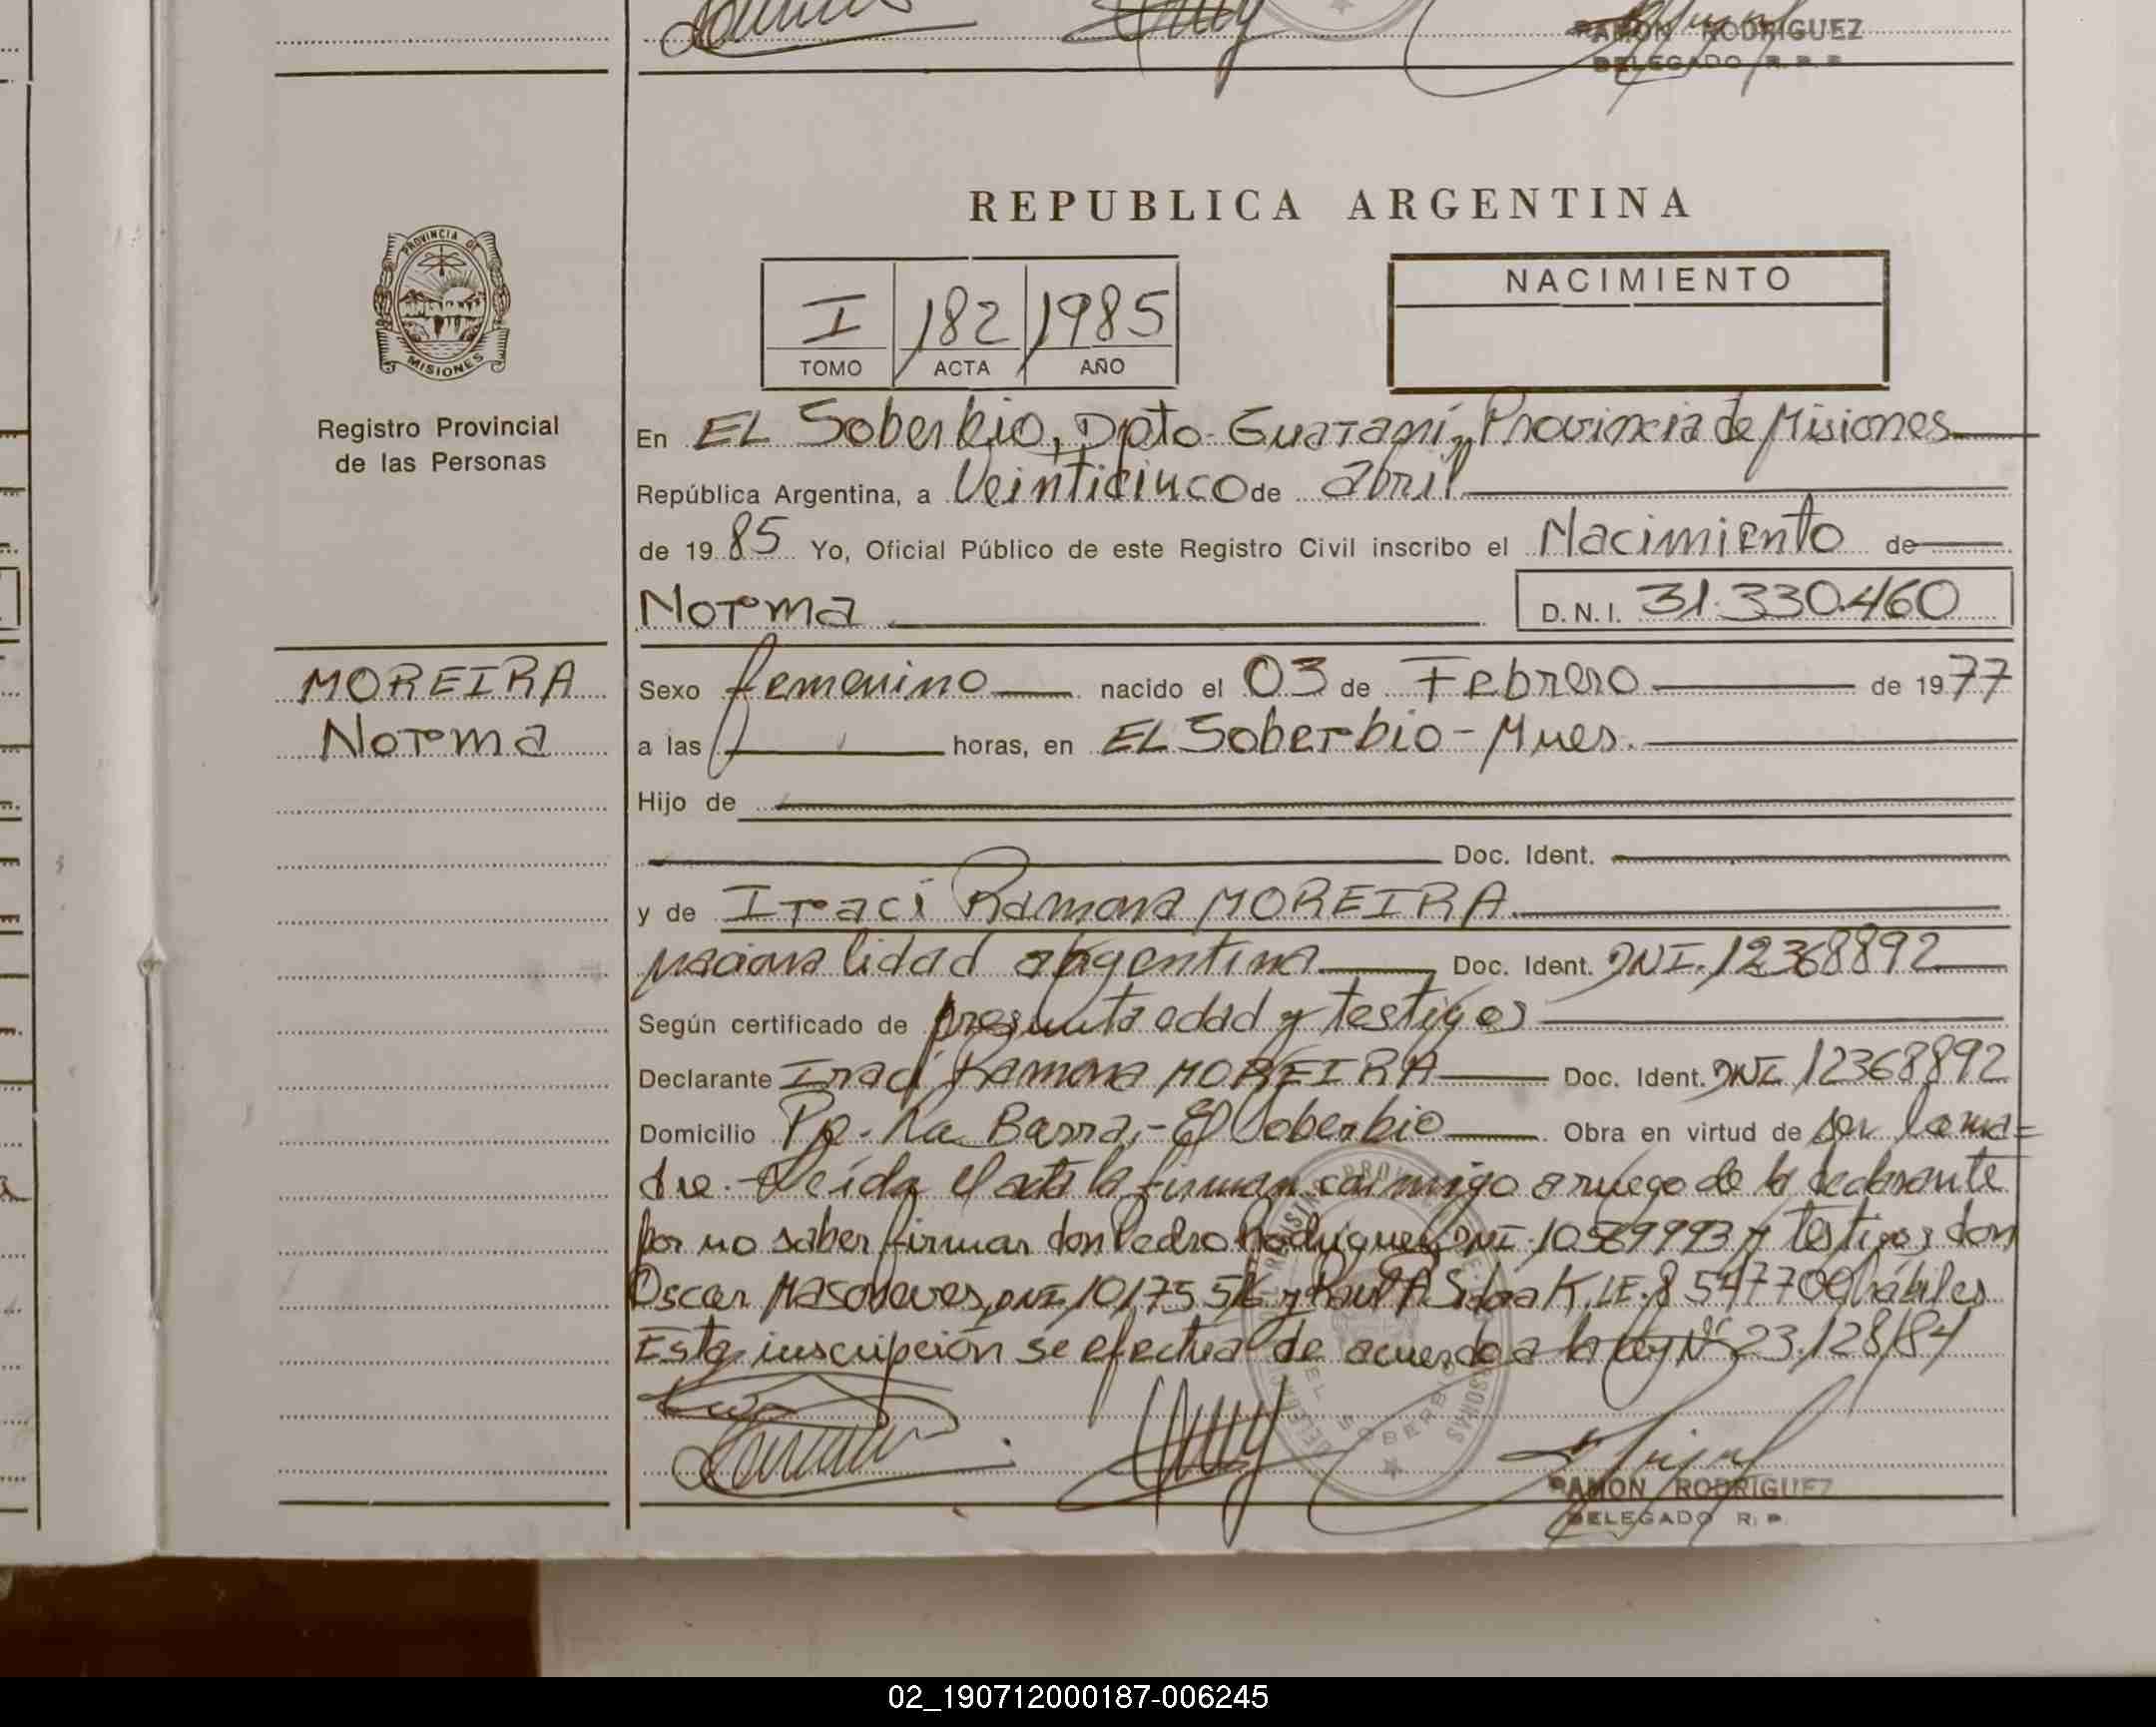 RAMON RODRIGUEZ
DELEGADO R. P. P.
REPUBLICA ARGENTINA
PROVINCIA DE
MISIONES
Registro Provincial
de las Personas
I 182 1985
TOMO ACTA AÑO
NACIMIENTO
En EL Soberbio, Dpto. Guaraní, Provincia de Misiones
República Argentina, a Veinticinco de abril
de 1985 Yo, Oficial Público de este Registro Civil inscribo el Nacimiento de
Norma D.N.I. 31.330.460
MOREIRA
Norma
Sexo femenino nacido el 03 de Febrero de 1977
a las horas, en EL Soberbio - Mnes.
Hijo de
Doc. Ident.
y de Iraci Ramona MOREIRA
nacionalidad argentina Doc. Ident. DNI. 12368892
Según certificado de presunta edad y testigos
Declarante Iraci Ramona MOREIRA Doc. Ident. DNI 12368892
Domicilio La Barra,- El Soberbio Obra en virtud de ser la ma=
dre.- Leída el acta la firman conmigo a ruego de la declarante
por no saber firmar don Pedro Rodriguez DNI. y testigos don
Oscar DNI. y Raul A. K, LE. hábiles
Esta inscripción se efectúa de acuerdo a la ley Nº 23.128/84
EL SOBERBIO
RAMON RODRIGUEZ
DELEGADO R. P.
02_190712000187-006245